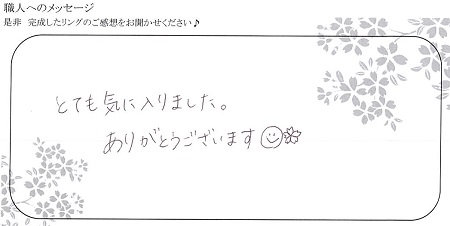 職人へのメッセージ
是非 完成したリングのご感想をお聞かせください♪
とても気に入りました。
ありがとうございます